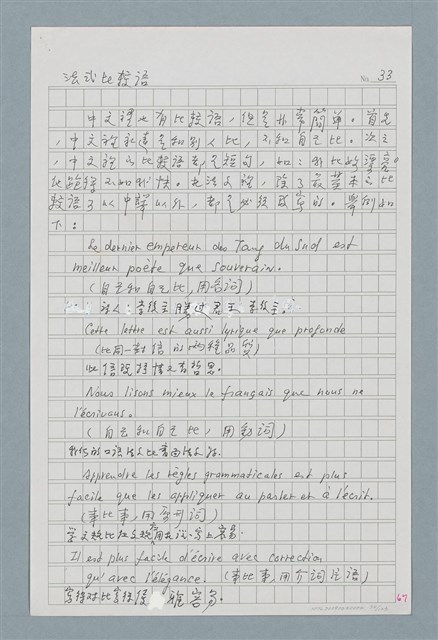 法式比較语
No. 33
中文裡也有比較语，但是非常簡單。首先
，中文裡永遠是和别人比，不和自己比。次之
，中文裡的比較语都是短句，如：你比她漂亮，
他跑得不如我快。在法文裡，除了最基本之比
較语可以中译以外，都是必须改寫的。舉例如
下：
Le dernier empereur des Tang du Sud est
meilleur poète que souverain.
(自己和自己比，用名词)
詩人：李後主勝过君王李後主。
Cette lettre est aussi lyrique que profonde
(比同一對信的兩種品質)
此信既抒情又有哲思。
Nous lisons mieux le français que nous ne
l'écrivons.
(自己和自己比，用動词)
我们的口语法文比書面法文好。
Apprendre les règles grammaticales est plus
facile que les appliquer au parler et à l'écrit.
(事比事，用形容词)
学文规比在文规用在说、写上容易。
Il est plus facile d'écrire avec correction
qu'avec l'élégance. (事比事，用介词片语)
寫得对比寫得優雅容易。
67